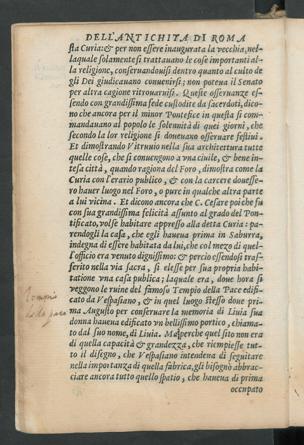 DELL'ANTICHITA DI ROMA
sta Curia: & per non essere inaugurata la vecchia, nel-
laquale solamente si trattauano le cose importanti al-
la religione, conseruandouisi dentro quanto al culto de
gli Dei giudicauano conuenirsi; non poteua il Senato
per altra cagione ritrouaruisi. Queste osseruanze es-
sendo con grandissima fede custodite da sacerdoti, dico-
no che ancora per il minor Pontefice in questa si com-
mandauano al popolo le solennità di quei giorni, che
secondo la lor religione si doueuano osseruare festiui.
Et dimostrando Vitruuio nella sua architettura tutte
quelle cose, che si conuengono a vna ciuile, & bene in-
tesa città, quando ragiona del Foro, dimostra come la
Curia con l'erario publico, & con la carcere douesse-
ro hauer luogo nel Foro, o pure in qualche altra parte
a lui vicina. Et dicono ancora che C. Cesare poi che fù
con sua grandissima felicità assunto al grado del Pon-
tificato, volse habitare appresso alla detta Curia: pa-
rendogli la casa, che egli haueua prima in Saburra,
indegna di essere habitata da lui, che col mezo di quel-
l'officio era venuto dignissimo: & percio essendosi tras-
ferito nella via Sacra, si elesse per sua propria habi-
tatione vna casa publica; laquale era, doue hora si
veggono le ruine del famoso Tempio della Pace edifi-
cato da Vespasiano, & in quel luogo stesso doue pri-
ma Augusto per conseruare la memoria di Liuia sua
donna haueua edificato vn bellissimo portico, chiama-
to dal suo nome, di Liuia. Ma perche quel sito non era
di quella capacità & grandezza, che riempiesse tut-
to il disegno, che Vespasiano intendeua di seguitare
nella importanza di quella fabrica, gli bisognò abbrac-
ciare ancora tutto quello spatio, che haueua di prima
occupato